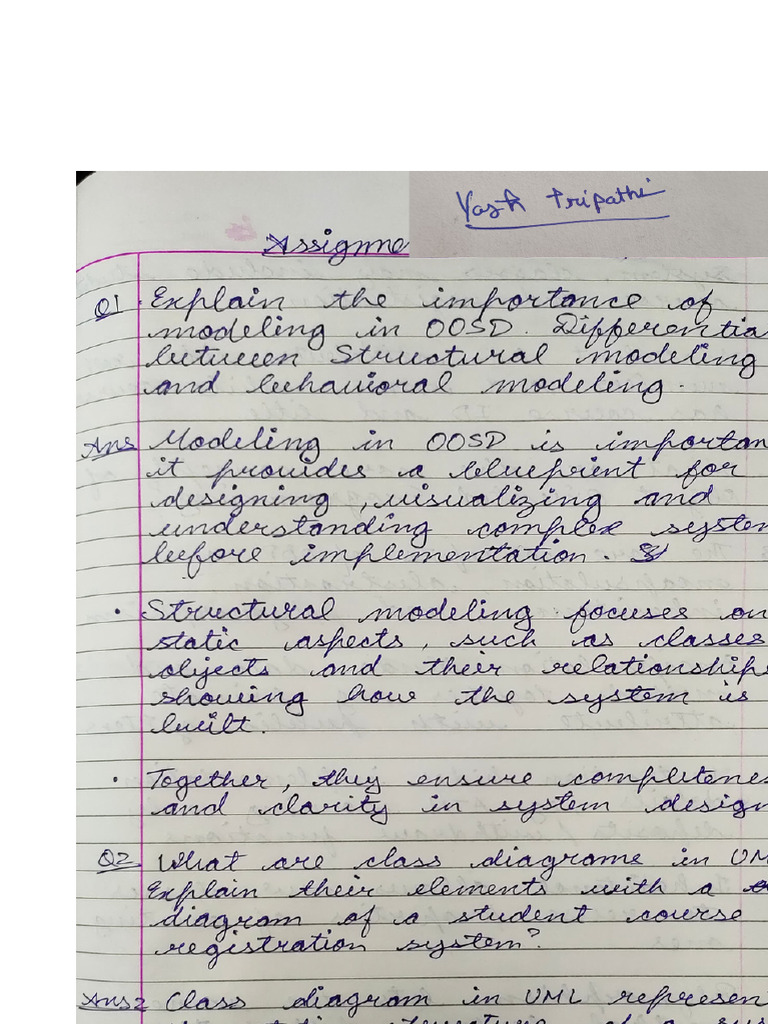 Yash Tripathi
Assignme
Q1 Explain the importance of
modeling in OOSD. Differentia
between Structural modeling
and behavioral modeling.
Ans Modeling in OOSD is importan
it provides a blueprint for
designing, visualizing and
understanding complex system
before implementation.
• Structural modeling focuses on
static aspects, such as classes
objects and their relationships
showing how the system is
built.
• Together, they ensure completenes
and clarity in system design
Q2 What are class diagrame in UM
Explain their elements with a
diagram of a student course
registration system?
Ans2 Class diagram in UML represen